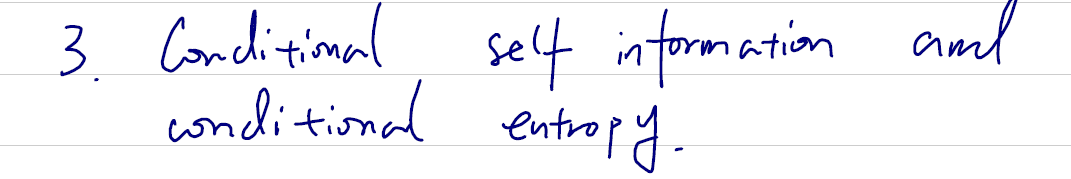 3. Conditional self information and
conditional entropy.